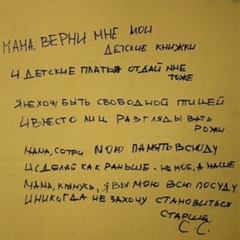 МАМА. ВЕРНИ МНЕ МОИ
ДЕТСКИЕ КНИЖКИ
И ДЕТСКИЕ ПЛАТЬЯ ОТДАЙ МНЕ
ТОЖЕ
Я НЕ ХОЧУ БЫТЬ СВОБОДНОЙ ПТИЦЕЙ
И ВМЕСТО ЛИЦ РАЗГЛЯДЫВАТЬ
РОЖИ
МАМА, СОТРИ МОЮ ПАМЯТЬ ВСЮДУ
И СДЕЛАЙ КАК РАНЬШЕ. НЕ МОЕ, А НАШЕ
МАМА, КЛЯНУСЬ, Я ВЫМОЮ ВСЮ ПОСУДУ
И НИКОГДА НЕ ЗАХОЧУ СТАНОВИТЬСЯ
СТАРШЕ
С.С.